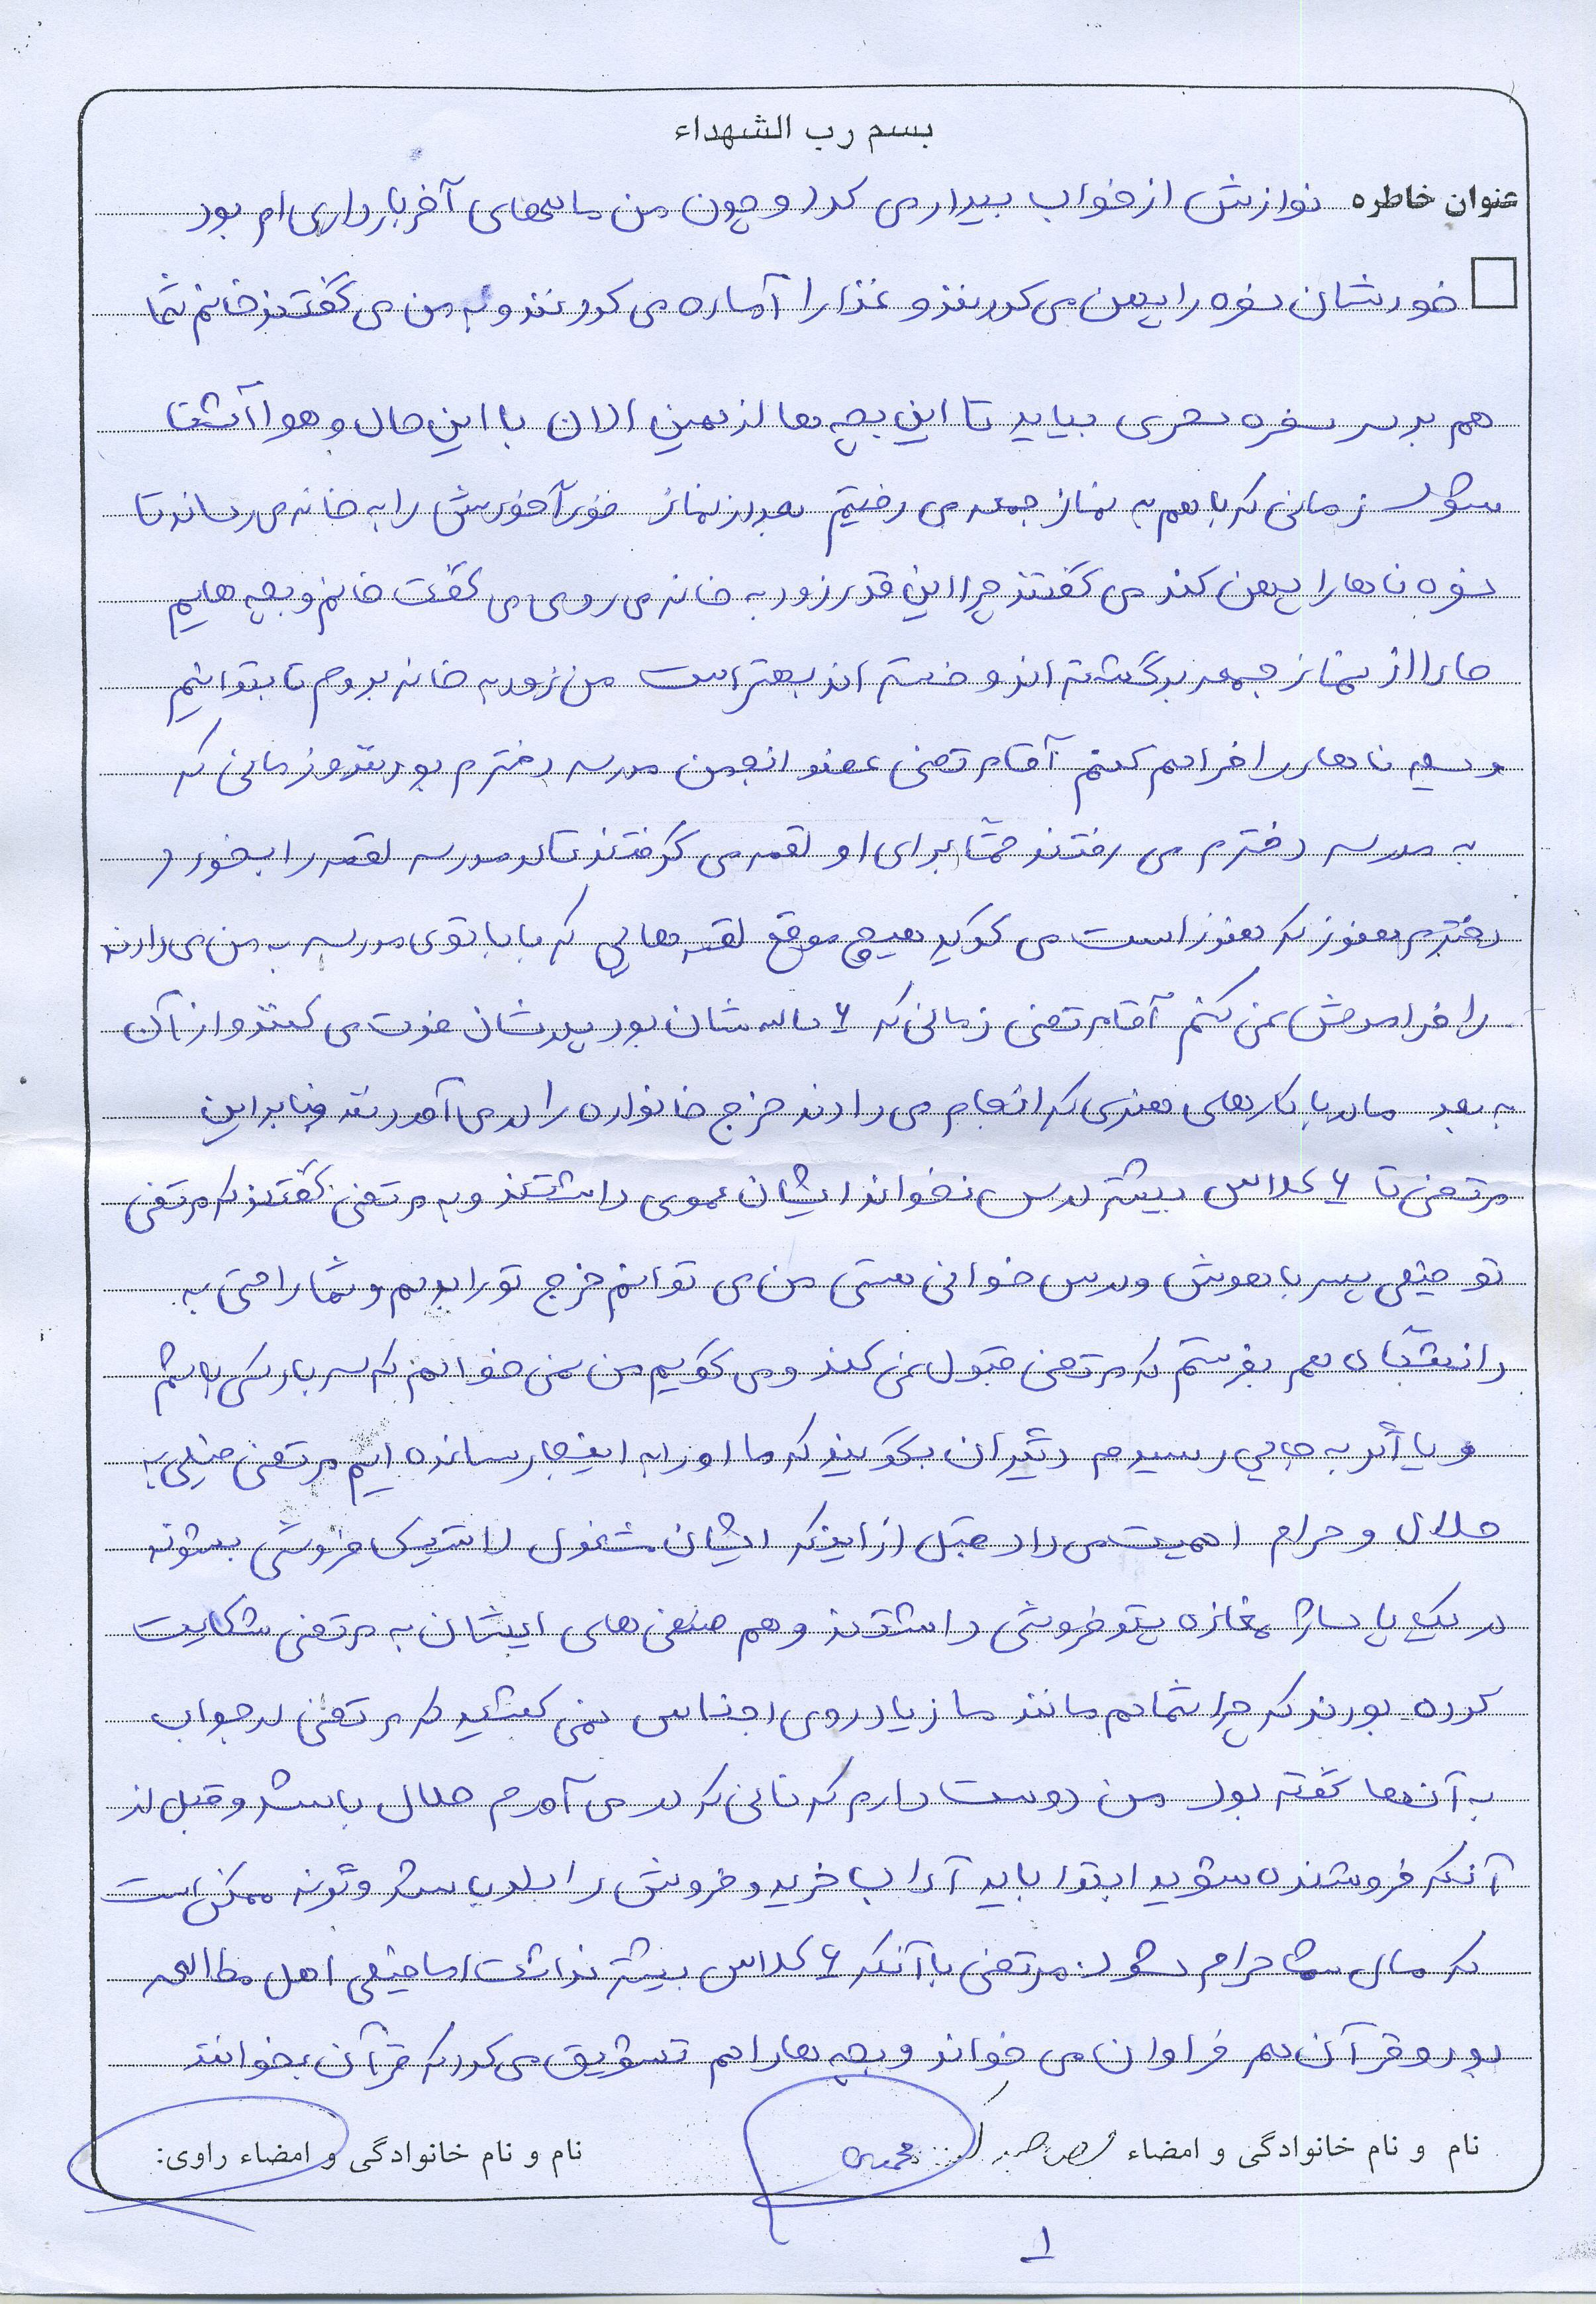 بسم رب الشهداء
عنوان خاطره نوازش از خواب بیدار می کرد و چون من ماههای آخر بارداری ام بود
خودشان سفره را پهن می کردند و غذا را آماده می کردند و به من می گفتند خانم شما
هم بر سر سفره سحری بیاید تا این بچه ها از همین الان با این حال و هوا آشنا
شود زمانی که با هم به نماز جمعه می رفتیم بعد از نماز فوراً خودش را به خانه می رساند تا
سفره ناهار را پهن کند می گفتند چرا این قدر زود به خانه می روی می گفت خانم و بچه هایم
حالا از نماز جمعه برگشته اند و خسته اند بهتر است من زود به خانه بروم تا بتوانیم
وسیله ناهار را فراهم کنم آقا مرتضی عضو انجمن مدرسه دخترم بودند و زمانی که
به مدرسه دخترم می رفتند حتماً برای او لقمه می گرفتند تا در مدرسه لقمه را بخورد
دخترم هنوز که هنوز است می گوید هیچ موقع لقمه هایی که بابا توی مدرسه به من می دادند
را فراموش نمی کنم آقا مرتضی زمانی که ۶ ساله شان بود پدرشان فوت می کنند و از آن
به بعد مادر با کارهای هنری که انجام می دادند خرج خانواده را در می آوردند بنابراین
مرتضی تا ۶ کلاس بیشتر درس نخواند ایشان عموی داشتند و به مرتضی گفتند که مرتضی
تو خیلی پسر باهوش و درس خوانی هستی من می توانم خرج تو را بدهم و شما را حتی به
دانشگاه هم بفرستم که مرتضی قبول نمی کند و می گویم من نمی خواهم که سربار کسی باشم
و یا اگر به جایی رسیدم دیگران بگویند که ما او را به اینجا رسانده ایم مرتضی خیلی به
حلال و حرام اهمیت می داد قبل از اینکه ایشان مشغول لاستیک فروشی بشوند
در یک پاساژ مغازه پتو فروشی داشتند و هم صنفی های ایشان به مرتضی شکایت
کرده بودند که چرا شما هم مانند ما زیاد روی اجناس نمی کشید که مرتضی در جواب
به آن ها گفته بود من دوست دارم که نانی که در می آورم حلال باشد و قبل از
آنکه فروشنده شوید ابتدا باید آداب خرید و فروش را بلد باشد وگرنه ممکن است
که مال شما حرام شود. مرتضی با آنکه ۶ کلاس بیشتر نداشت اما خیلی اهل مطالعه
بود و قرآن هم فراوان می خواند و بچه ها را هم تشویق می کرد که قرآن بخوانند
نام و نام خانوادگی و امضاء مصاحبه گر: محمدی
نام و نام خانوادگی و امضاء راوی:
۱